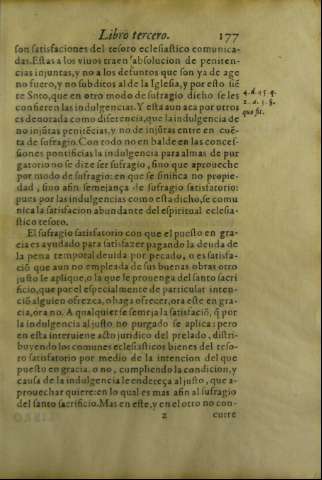 Libro tercero. 177
son satisfaciones del tesoro eclesiastico comunica-
das. Estas a los viuos traen absolucion de peniten-
cias injuntas, y no a los defuntos que son ya de age
no fuero, y no subditos al de la Iglesia, y por esto iuē
te Snto, que en otro modo de sufragio dicho se les
confieren las indulgencias. Y esta aun aca por otros
es denotada como diferencia, que la indulgencia de
no injūtas penitēcias, y no de injūtas entre en cuē-
ta de sufragio. Con todo no en balde en las conces-
siones pontificias la indulgencia para almas de pur
gatorio no se dize ser sufragio, sino que aproueche
por modo de sufragio: en que se sinifica no propie-
dad, sino afin semejança de sufragio satisfatorio:
pues por las indulgencias como esta dicho, se comu
nica la satisfacion abundante del espiritual eclesia-
stico tesoro.
El sufragio satisfatorio con que el puesto en gra-
cia es ayudado para satisfazer pagando la deuda de
la pena temporal deuida por pecado, o es satisfa-
ciō que aun no empleada de sus buenas obras otro
justo le aplique, o la que le prouenga del santo sacri
ficio, que por el especialmente de particular inten-
ciō alguien ofrezca, o haga ofrecer, ora este en gra-
cia, ora no. A qualquier se semeja la satisfaciō, q̄ por
la indulgencia al justo no purgado se aplica: pero
en esta interuiene acto juridico del prelado, distri-
buyendo los comunes eclesiasticos bienes del teso-
ro satisfatorio por medio de la intencion del que
puesto en gracia, o no, cumpliendo la condicion, y
causa de la indulgencia le endereça al justo, que a-
prouechar quiere: en lo qual es mas afin al sufragio
del santo sacrificio. Mas en este, y en el otro no con-
z curre
4. d. 45. q.
2. d. 3. §.
quo sit.